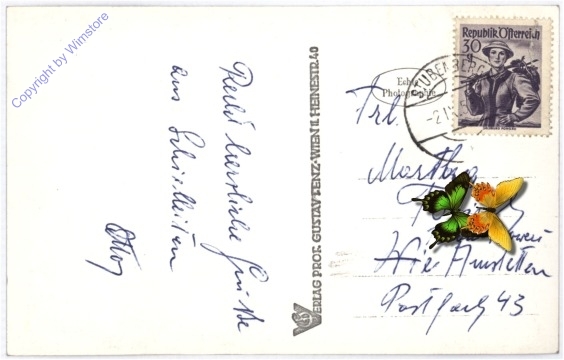 Copyright by Wimstore
Recht herzliche Grüße
aus Schielleiten
Otto
VERLAG PROF. GUSTAV LENZ-WIEN II. HEINESTR. 40
Echte
Photographie
Republik Österreich
30 g
Frl.
Martha
Amstetten
Postfach 43